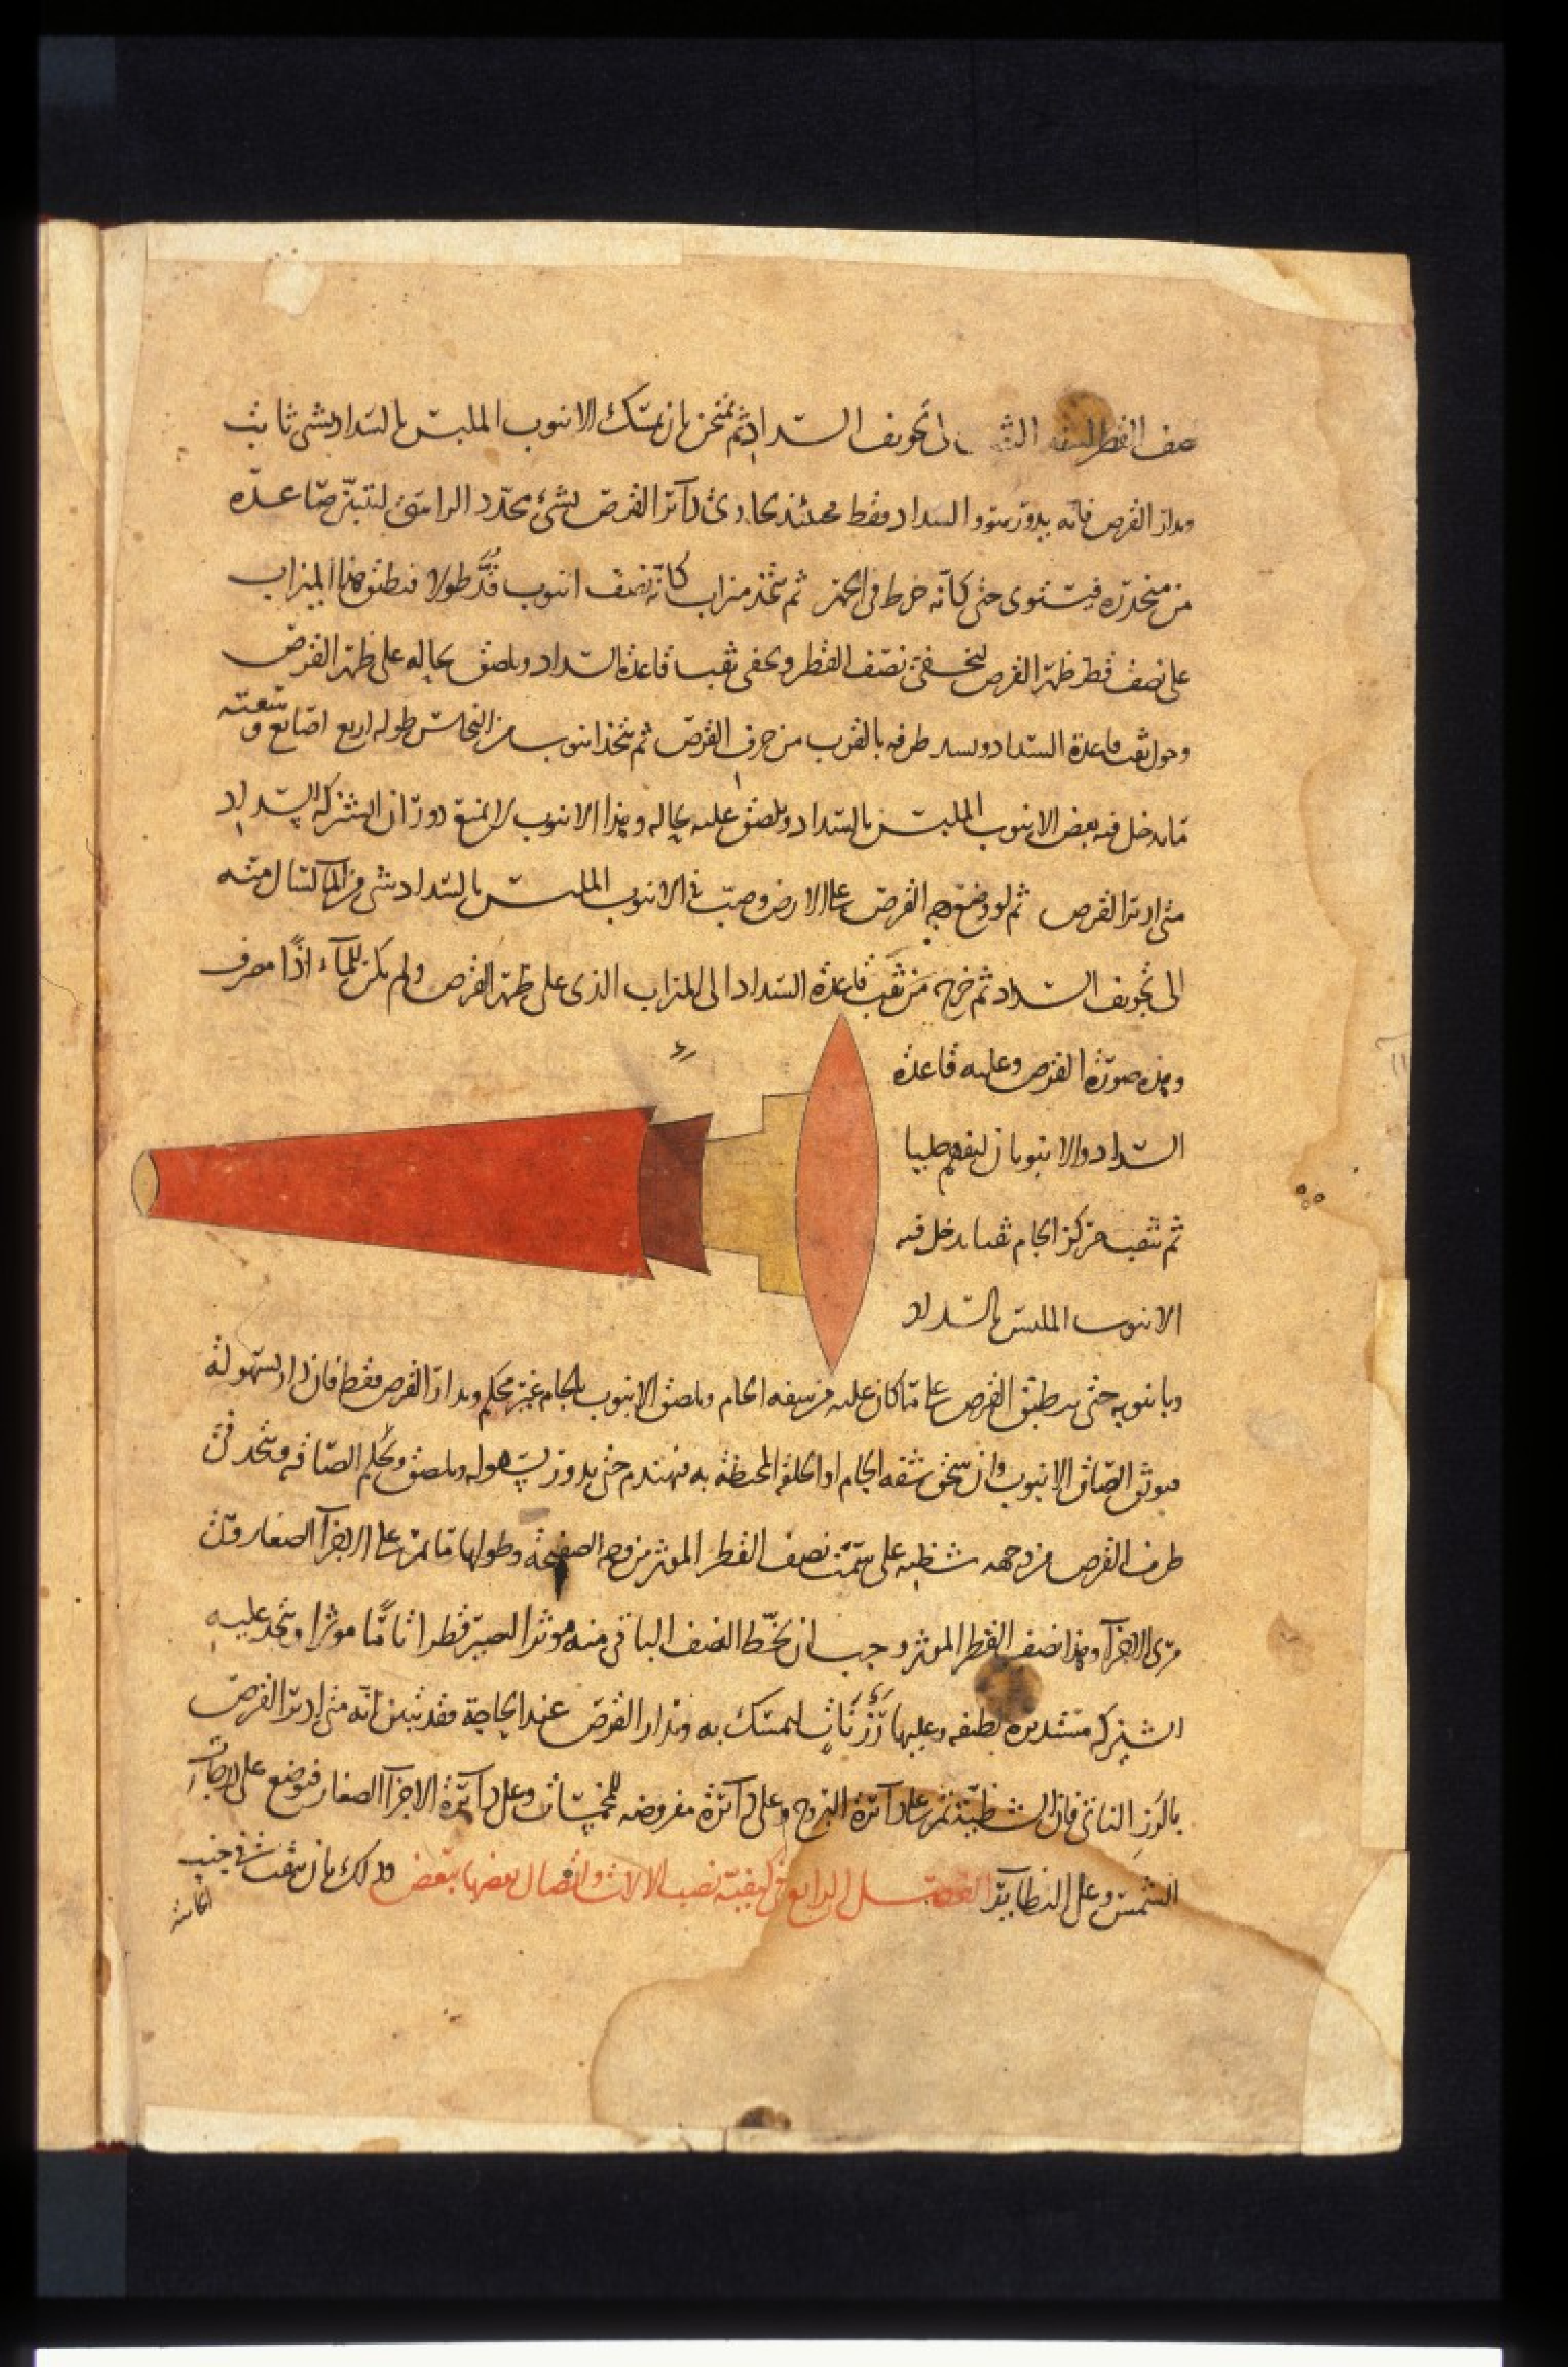 نصف القطر الى تجويف السداد ثم تمتحن بان تمسك الانبوب الملبس بالسداد بشئ ثابت
ويدار القرص فانه يدور بدور السداد فقط فحينئذ يحاذى دائر القرص بشئ محدد الراس ليتبين متباعده
من منحدره فيستوى حتى كانه خرط فى الجهر ثم تتخذ ميزاب كانه نصف انبوب قُدَّ طولا فيطبق هذا الميزاب
على نصف قطر ظهر القرص ليخفى نصف القطر ويخفى ثقب قاعدة السداد ويلصق بحاله على ظهر القرص
وحول ثقب قاعدة السداد ويسد طرفه بالقرب من حرف القرص ثم يتخذ انبوب من النحاس طوله اربع اصابع وسعته
ما يدخل فيه بعض الانبوب الملبس بالسداد ويلصق عليه بحاله وهذا الانبوب لا يمنع دوران الشيزكه السداد
متى ادير القرص ثم لو وضع وجه القرص على الارض وصب فى الانبوب الملبس بالسداد شى من الماء لسال منه
الى تجويف السداد ثم خرج من ثقب قاعدة السداد الى الميزاب الذى على ظهر القرص ولم يكن للماء اذًا مصرف
وهذه صورة القرص وعليه قاعدة
السداد والانبوبان ليفهم طلبا
ثم تثقب مركز الجام ثقبا يدخل فيه
الانبوب الملبس بالسداد
وبانبوبه حتى ينطبق القرص على ما كان عليه من سعه الجام ويلصق الانبوب بالجام غير محكم ويدار القرص فقط فان دار بسهولة
فيوثق الصاق الانبوب وان سحق شفه الجام او الحلقة المحيطة به فيهندم حتى يدور بسهوله ويلصق ويحكم الصاقه ويتخذ فى
طرف القرص من وجهه شظيه على سمت نصف القطر المؤثر من وجه الصفيحة وطولها ما تمر على الاجزآ الصغار وقت
مرى الاجزآ وهذا نصف القطر المؤثر وجب ان يخط النصف الباقى منه مؤثرا ليصير قطرا تامًا موثرا ويتخذ عليه
الشيزكه مستديره لطيفه وعليها زر ناتٍ ليمسك به ويدار القرص عند الحاجة فقد تبين انه متى ادير القرص
بالزر الناتئ فان الشظية تمر على دآئرة البروج وعلى دآئرة مفروضه للخمسات وعلى دآئرة الاجزآ الصغار فيوضع على درجات
الشمس وعلى النظاير الفصل الرابع فى كيفية نصب الالات واتصال بعضها ببعض وذلك بان تثقب فى جنب